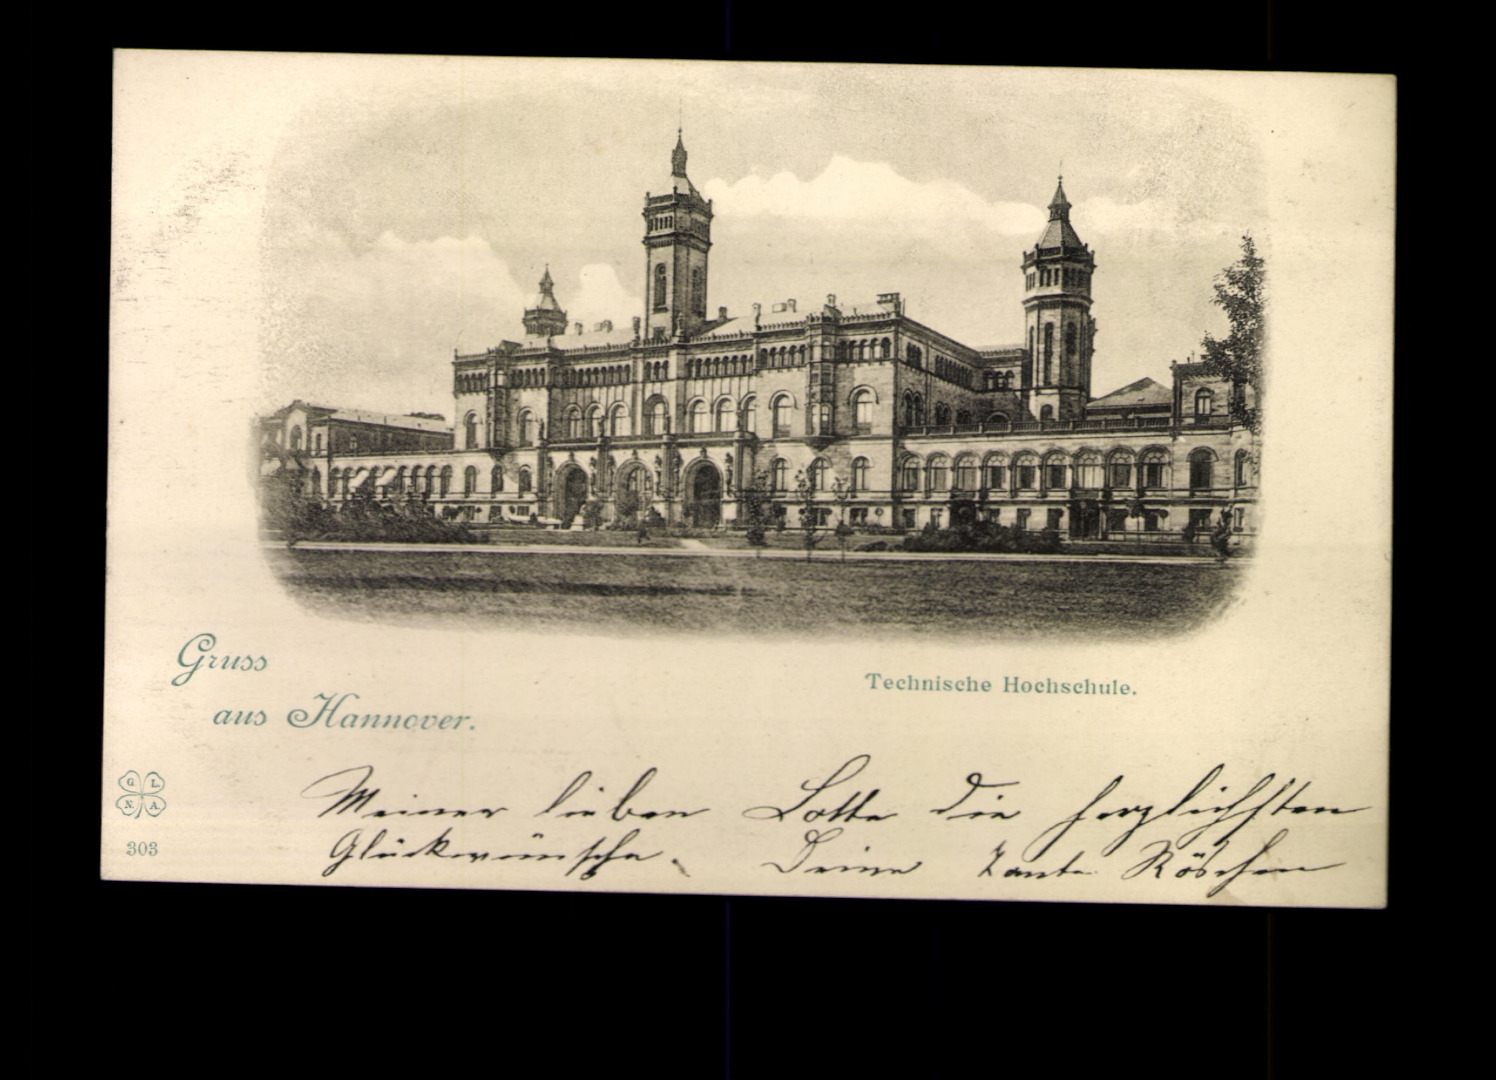 Gruss
aus Hannover.
Technische Hochschule.
G. L.
N. A.
303
Meiner lieben Lotte die herzlichsten
Glückwünsche. Deine Tante Röschen